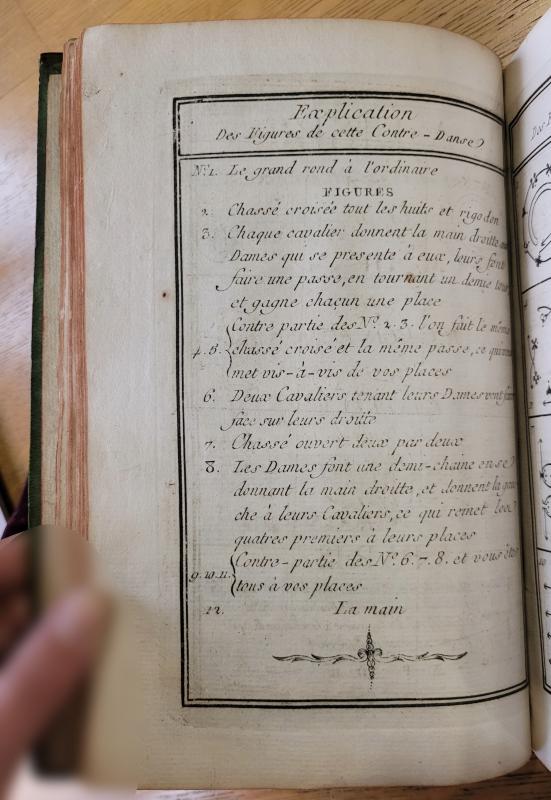 Explication
Des Figures de cette Contre-Danse
N.º1. Le grand rond à l'ordinaire
FIGURES
2. Chassé croisée tout les huits et rigodon
3. Chaque cavalier donnent la main droitte aux
Dames qui se presente à eux, leurs font
faire une passe, en tournant un demie tour
et gagne chaçun une place
Contre partie des Nº. 2. 3. l'on fait le même
4. 5. chassé croisé et la même passe, ce qui vous
met vis-à-vis de vos places
6. Deux Cavaliers tenant leurs Dames vont faire
face sur leurs droitte
7. Chassé ouvert deux par deux
8. Les Dames font une demi-chaine en se
donnant la main droitte, et donnent la gau
che à leurs Cavaliers, ce qui remet les
quatres premiers à leurs places
Contre-partie des Nº. 6. 7. 8. et vous êtes
9. 10. 11. tous à vos places
12. La main